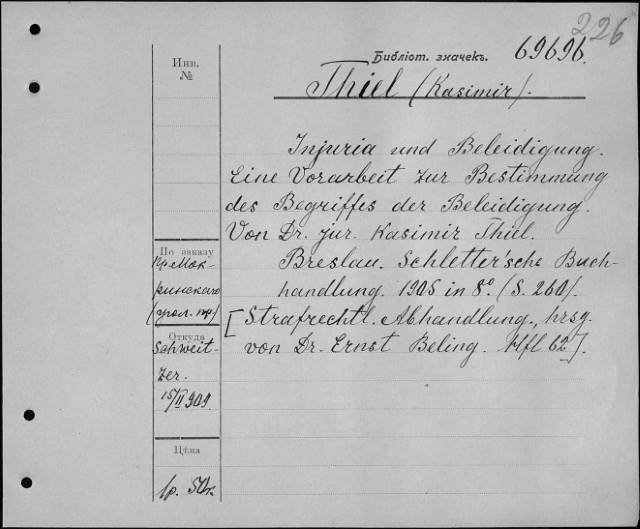 226
Библіот. значекъ. 69696.
Инв.
№
Thiel (Kasimir).
Injuria und Beleidigung.
Eine Vorarbeit zur Bestimmung
des Begriffes der Beleidigung.
Von Dr. jur. Kasimir Thiel.
Breslau. Schletter'sche Buch-
handlung. 1905 in 8° (S. 260).
[Strafrechtl. Abhandlung., hrsg.
von Dr. Ernst Beling. Hft 62].
По заказу
пр. Мок-
ринскаго
Откуда
Schweit-
zer.
15/II 909.
Цѣна
1р. 50к.